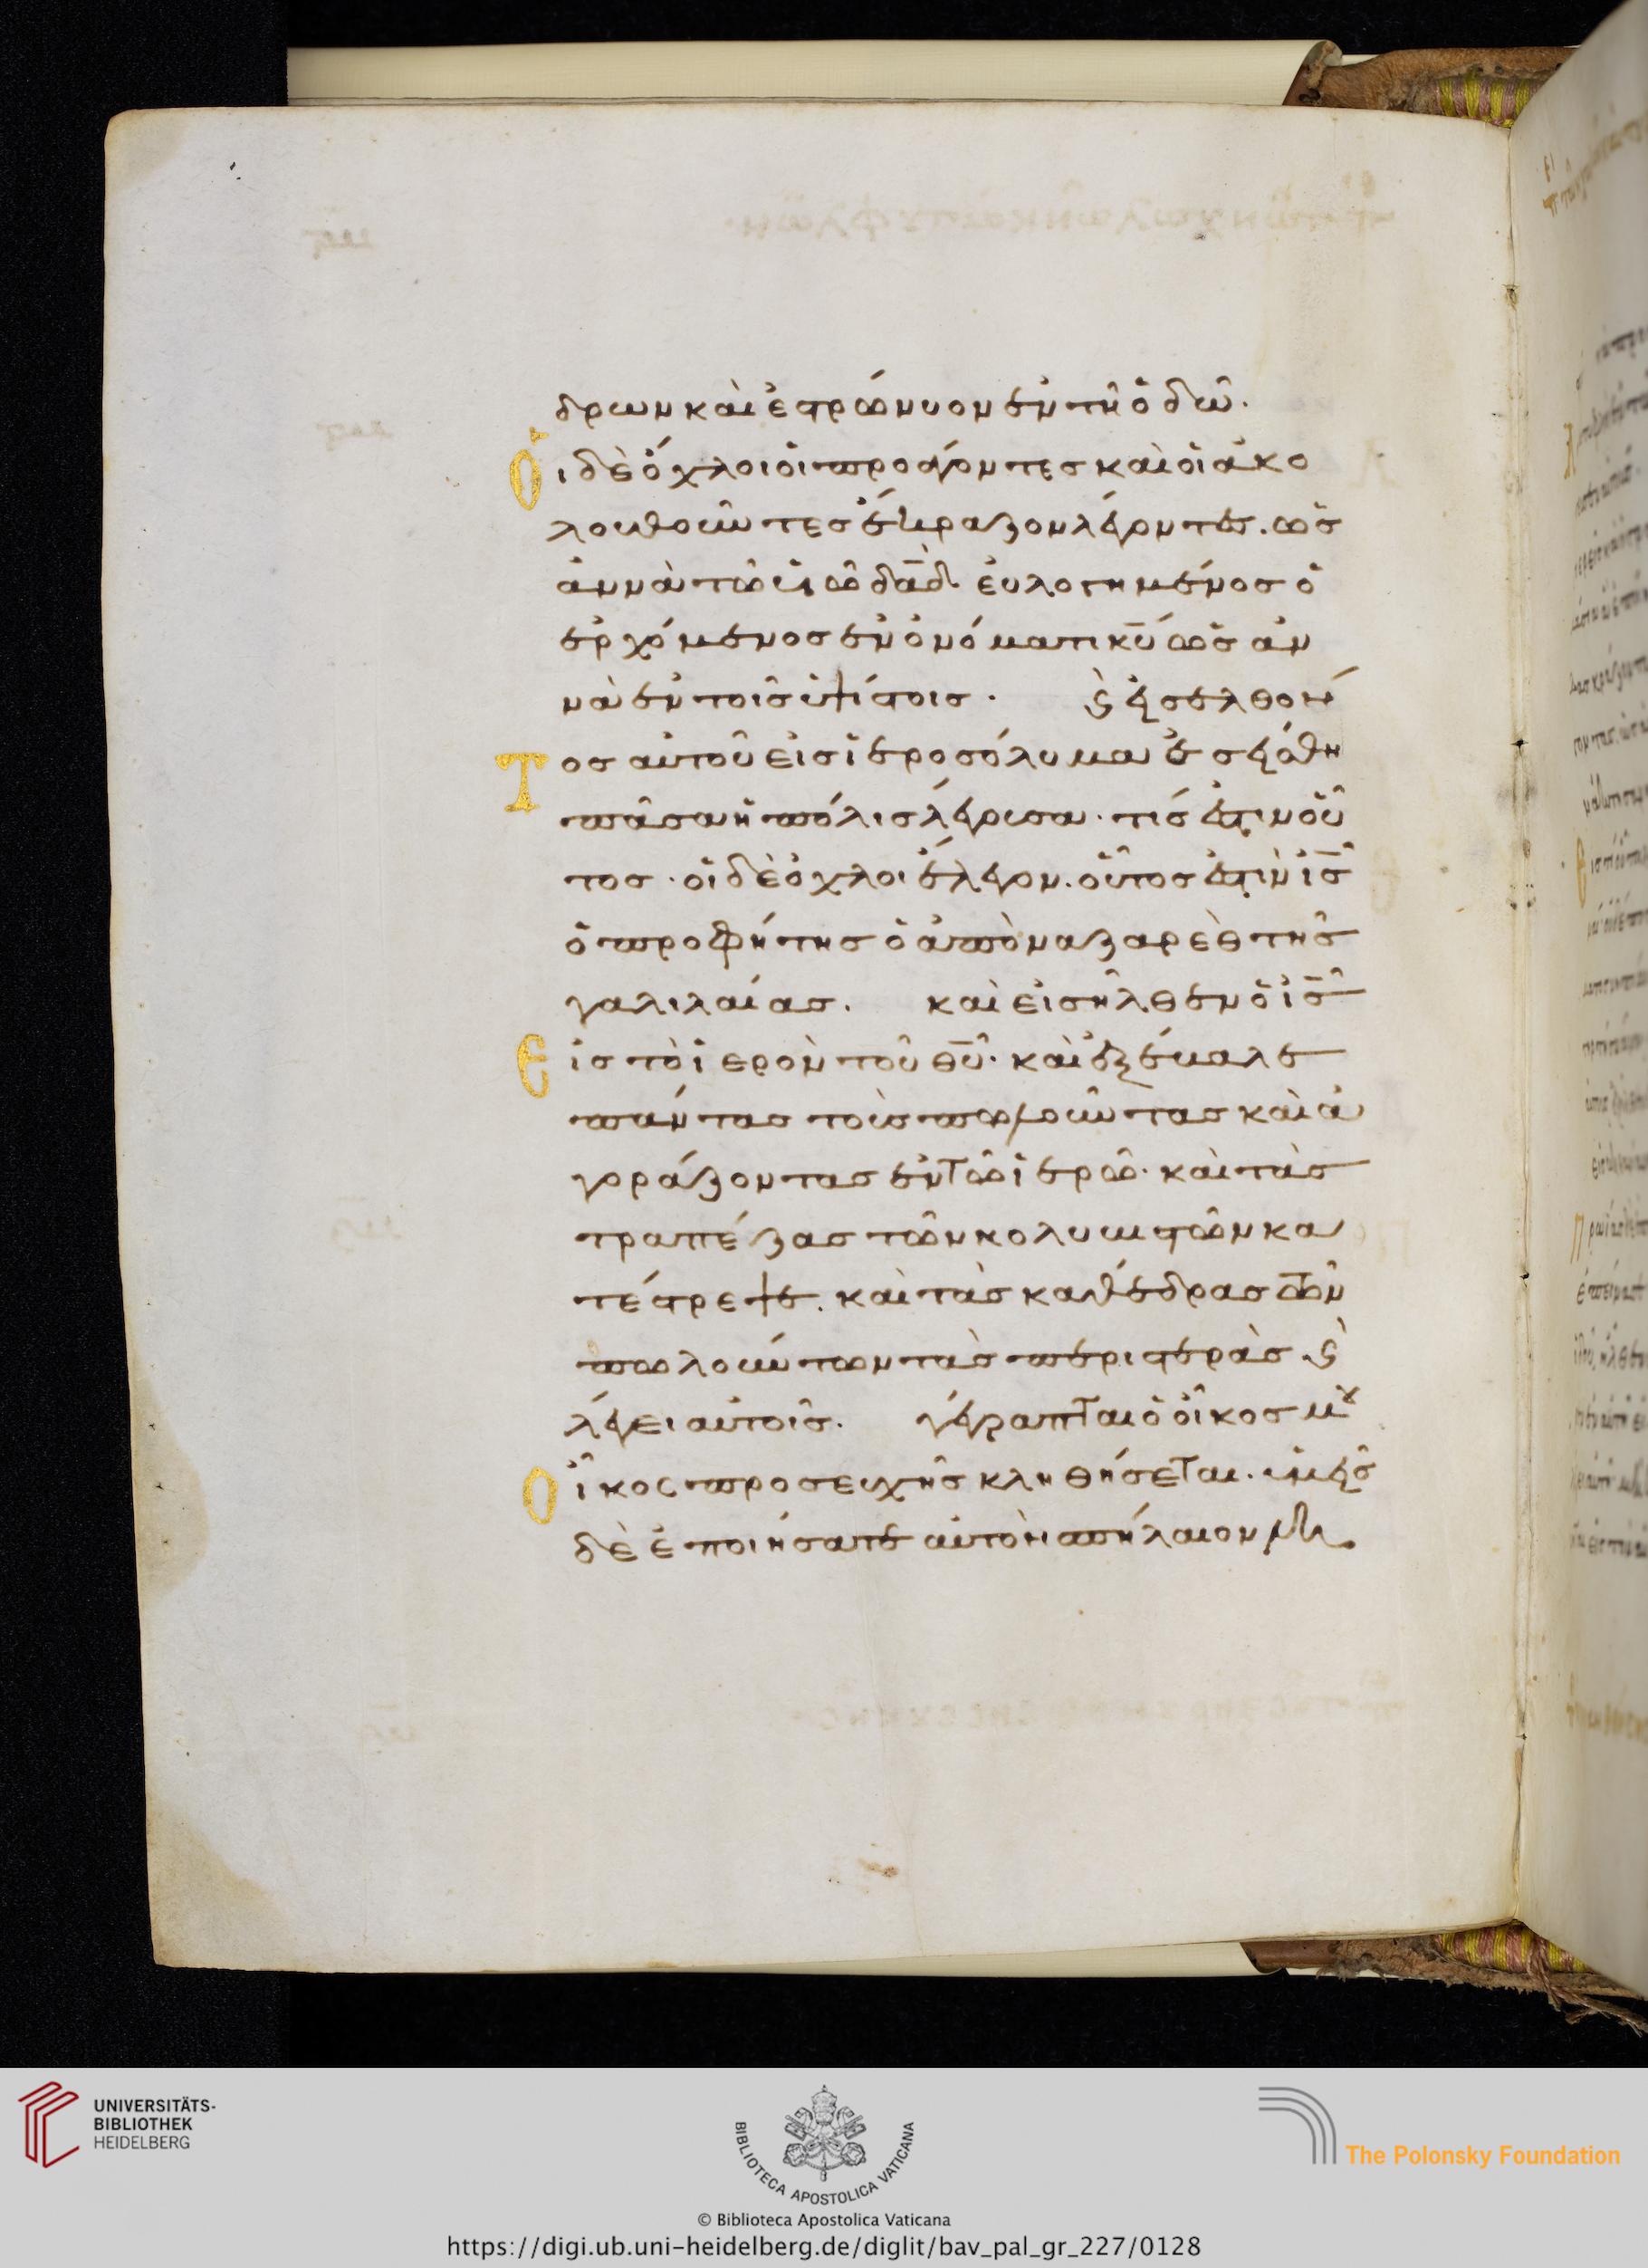 δρων καὶ ἐστρώννυον ἐν τῆ ὁδῶ.
Οἱ δὲ ὄχλοι οἱ προάγοντες καὶ οἱ ἀκο
λουθοῦντες ἔκραζον λέγοντες. ὡσ
ἀννὰ τῶ υἱῶ δαδ εὐλογημένος ὁ
ἐρχόμενος ἐν ὀνόματι κυ ὡσάν
νὰ ἐν τοῖς ὑψίστοις. ϛ εἰσελθόν
Τος αὐτοῦ εἰς ἱεροσόλυμα ἐσείσθη
πᾶσα ἡ πόλις λέγουσα. τίς ἐστιν οὗ
τος. οἱ δὲ ὄχλοι ἔλεγον. οὗτός ἐστιν ις
ὁ προφήτης ὁ ἀπὸ ναζαρὲθ τῆς
γαλιλαίας. καὶ εἰσῆλθεν ὁ ις
Εἰς τὸ ἱερὸν τοῦ θυ. καὶ ἐξέβαλε
πάντας τοὺς πωλοῦντας καὶ ἀ
γοράζοντας ἐν τῶ ἱερῶ. καὶ τὰς
τραπέζας τῶν κολυβιστῶν κα
τέστρεψε. καὶ τὰς καθέδρας τῶν
πωλούντων τὰς περιστεράς. ϛ
λέγει αὐτοῖς. γέγραπται ὁ οἶκός μου
Οἶκος προσευχῆς κληθήσεται. ὑμεῖς
δὲ ἐποιήσατε αὐτὸν σπήλαιον
UNIVERSITÄTS-
BIBLIOTHEK
HEIDELBERG
BIBLIOTECA APOSTOLICA VATICANA
The Polonsky Foundation
© Biblioteca Apostolica Vaticana
https://digi.ub.uni-heidelberg.de/diglit/bav_pal_gr_227/0128